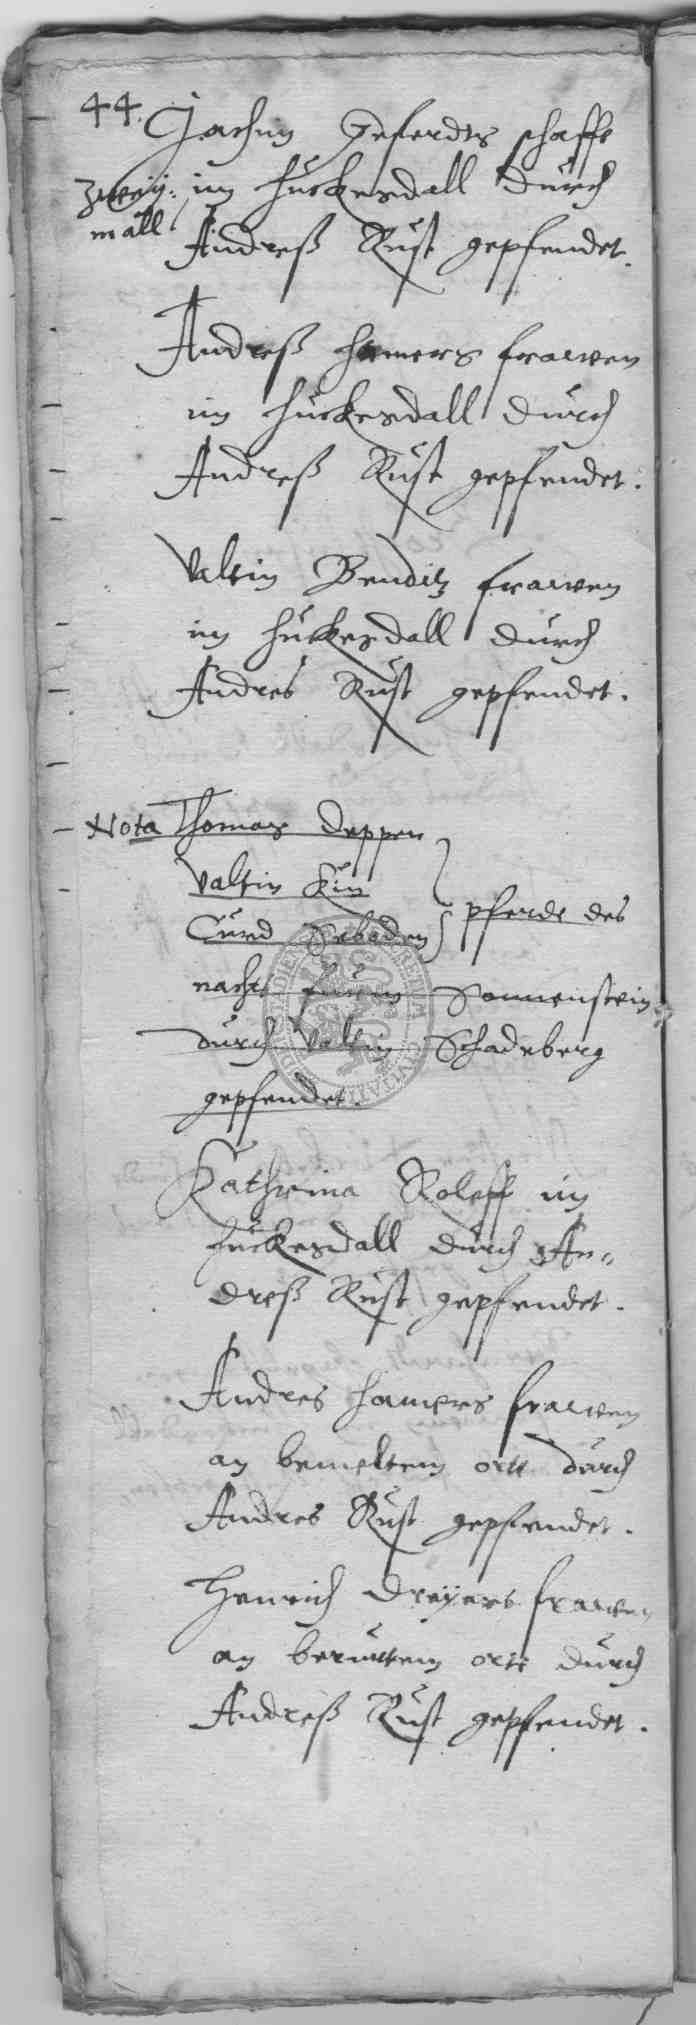 44.
Jachim Geferdts schaffe
zweÿ: im huckesdall durch
mall Andreß Rust gepfendet.
Andreß hamers frawen
im huckesdall durch
Andreß Rust gepfendet.
Valtin Benditz frawen
im huckesdall durch
Andres Rust gepfendet.
Nota Thomas Deppen
Valtin Kin
Curd pferde des
nachts Sonnenstein
durch Valtin Schadeberg
gepfendet.
Kathrina Roleff im
huckesdall durch An„
dreß Rust gepfendet.
Andres hamers frawen
an bemeltem orte durch
Andres Rust gepfendet.
Henrich Dreÿers frawen
an berurtem orte durch
Andreß Rust gepfendet.